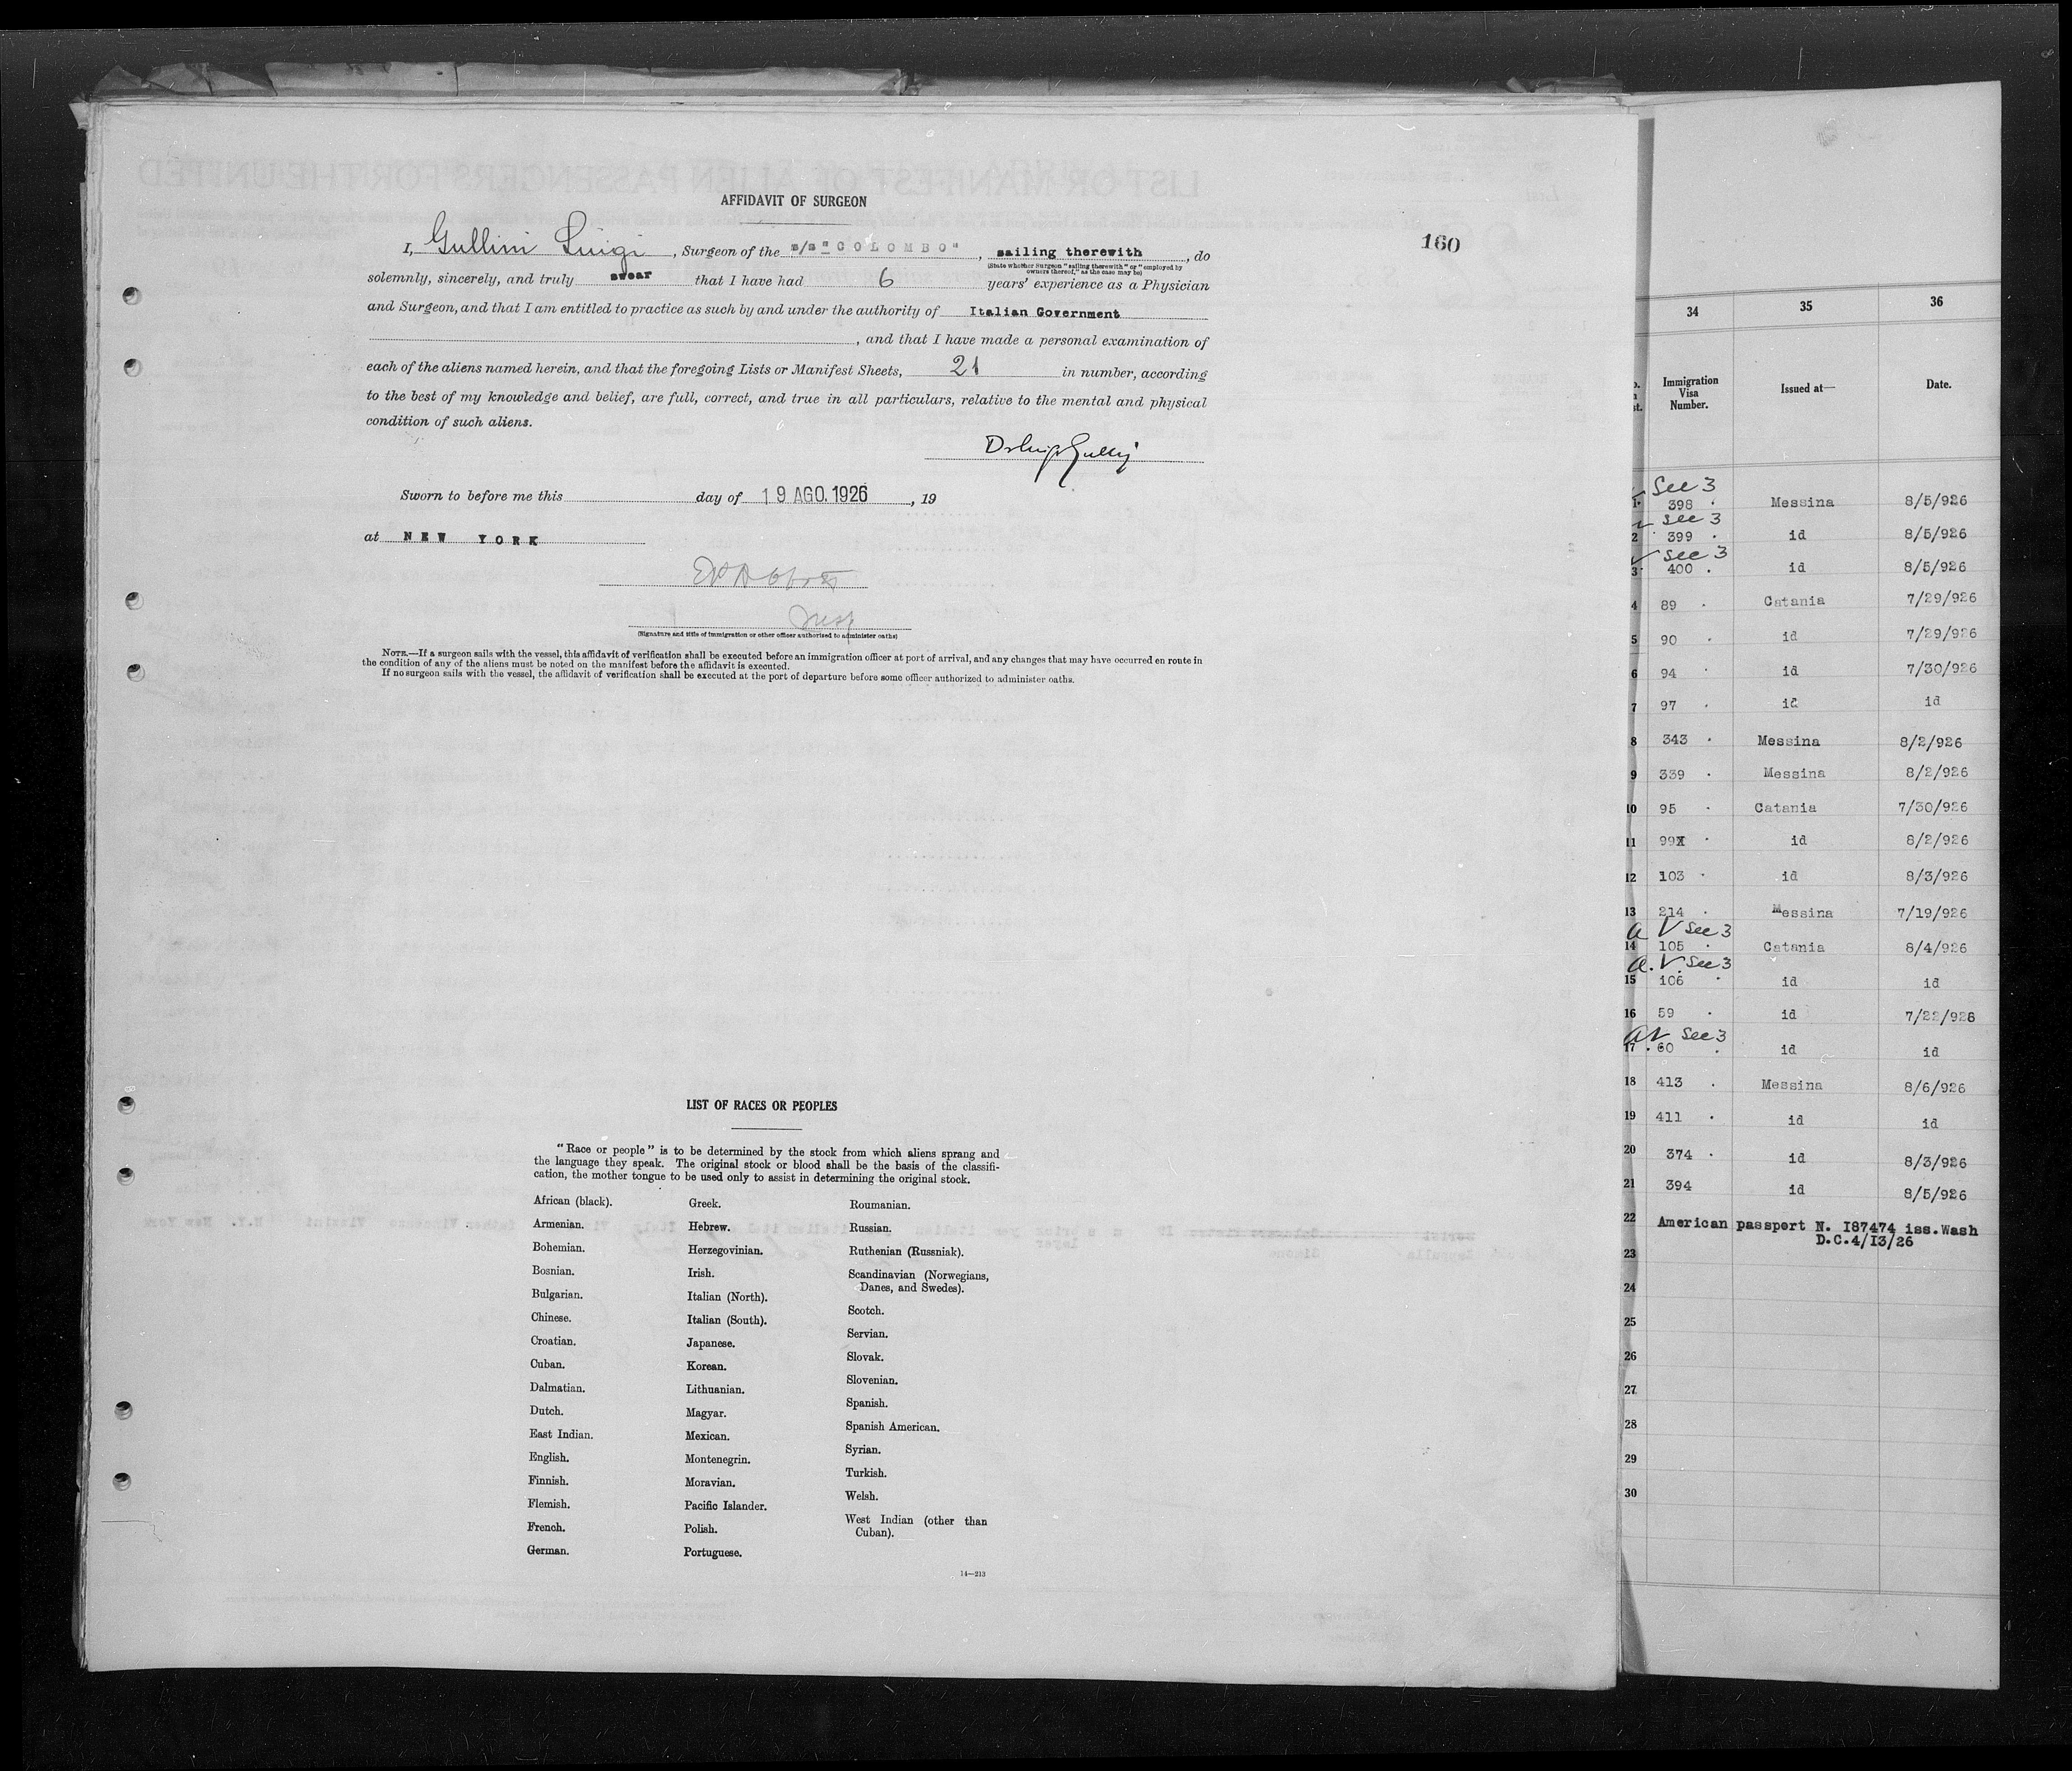 AFFIDAVIT OF SURGEON
160
I, Gullini Luigi, Surgeon of the s/s "COLOMBO", sailing therewith, do
(State whether Surgeon "sailing therewith" or "employed by
owners thereof," as the case may be)
solemnly, sincerely, and truly swear that I have had 6 years' experience as a Physician
and Surgeon, and that I am entitled to practice as such by and under the authority of Italian Government
, and that I have made a personal examination of
each of the aliens named herein, and that the foregoing Lists or Manifest Sheets, 21 in number, according
to the best of my knowledge and belief, are full, correct, and true in all particulars, relative to the mental and physical
condition of such aliens.
Sworn to before me this day of 19 AGO. 1926, 19
at NEW YORK
Insp
(Signature and title of immigration or other officer authorized to administer oaths)
NOTE.—If a surgeon sails with the vessel, this affidavit of verification shall be executed before an immigration officer at port of arrival, and any changes that may have occurred en route in
the condition of any of the aliens must be noted on the manifest before the affidavit is executed.
If no surgeon sails with the vessel, the affidavit of verification shall be executed at the port of departure before some officer authorized to administer oaths.
LIST OF RACES OR PEOPLES
"Race or people" is to be determined by the stock from which aliens sprang and
the language they speak. The original stock or blood shall be the basis of the classifi-
cation, the mother tongue to be used only to assist in determining the original stock.
African (black).
Armenian.
Bohemian.
Bosnian.
Bulgarian.
Chinese.
Croatian.
Cuban.
Dalmatian.
Dutch.
East Indian.
English.
Finnish.
Flemish.
French.
German.
Greek.
Hebrew.
Herzegovinian.
Irish.
Italian (North).
Italian (South).
Japanese.
Korean.
Lithuanian.
Magyar.
Mexican.
Montenegrin.
Moravian.
Pacific Islander.
Polish.
Portuguese.
Roumanian.
Russian.
Ruthenian (Russniak).
Scandinavian (Norwegians,
Danes, and Swedes).
Scotch.
Servian.
Slovak.
Slovenian.
Spanish.
Spanish American.
Syrian.
Turkish.
Welsh.
West Indian (other than
Cuban).
14—213
34 35 36
Immigration
Visa
Number.
Issued at—
Date.
See 3
1 398 Messina 8/5/926
See 3
2 399 id 8/5/926
See 3
3 400 id 8/5/926
4 89 Catania 7/29/926
5 90 id 7/29/926
6 94 id 7/30/926
7 97 id id
8 343 Messina 8/2/926
9 339 Messina 8/2/926
10 95 Catania 7/30/926
11 99X id 8/2/926
12 103 id 8/3/926
13 214 Messina 7/19/926
a V See 3
14 105 Catania 8/4/926
a. V. See 3
15 106 id id
16 59 id 7/22/926
av See 3
17 60 id id
18 413 Messina 8/6/926
19 411 id id
20 374 id 8/3/926
21 394 id 8/5/926
22 American passport N. I87474 iss.Wash
D.C.4/I3/26
23
24
25
26
27
28
29
30